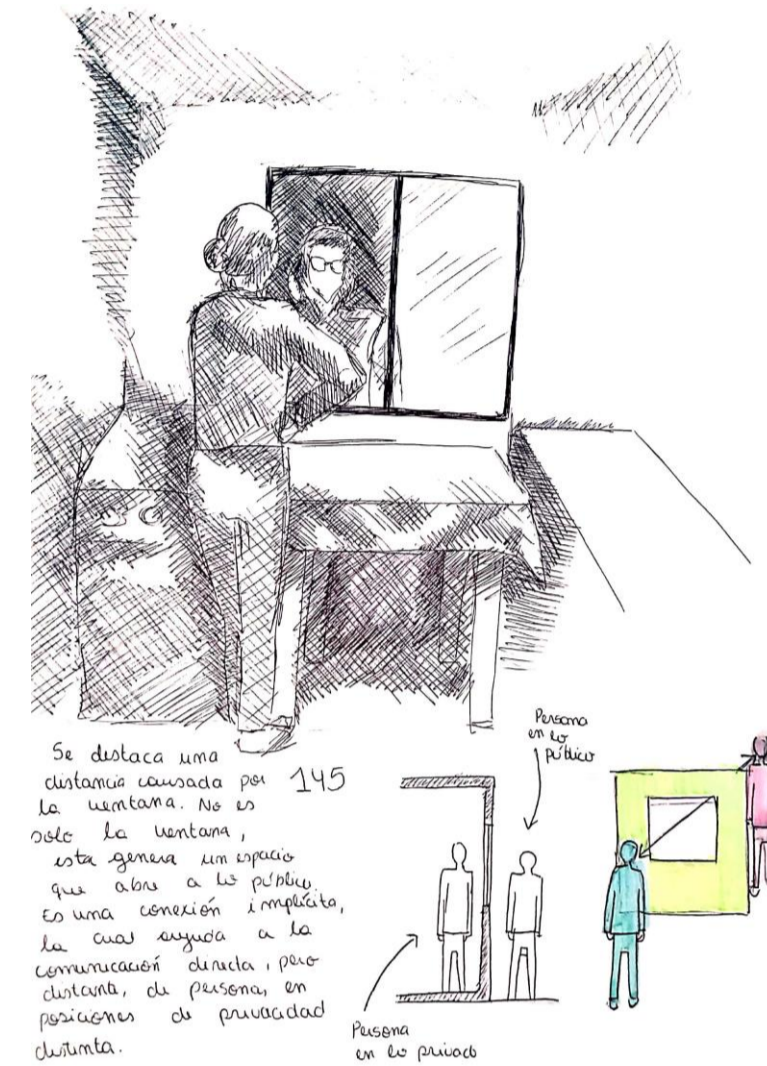 Se destaca una
distancia causada por
la ventana. No es
solo la ventana,
esta genera un espacio
que abre a lo público.
Es una conexión implícita,
la cual ayuda a la
comunicación directa, pero
distante, de personas en
posiciones de privacidad
distinta.
145
Persona
en lo
público
Persona
en lo privado